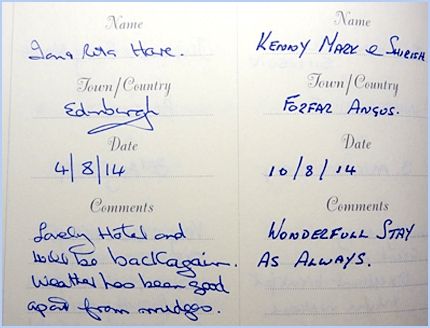 Name
Ian & Rita Hare.
Town/Country
Edinburgh
Date
4/8/14
Comments
Lovely Hotel and
will be back again.
Weather has been good
apart from midges.
Name
KENNY MARK & SHIRISH
Town/Country
FORFAR ANGUS.
Date
10/8/14
Comments
WONDERFULL STAY
AS ALWAYS.